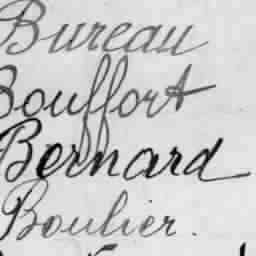 Bureau
Bouffort
Bernard
Boulier.